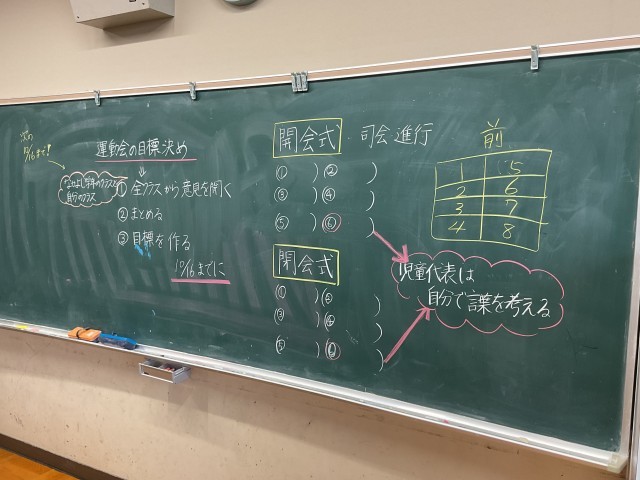 次の
10/16まで!
なかよし学年のクラスと
自分のクラス
運動会の目標決め
↓
① 全クラスから意見を聞く
② まとめる
③ 目標を作る
10/16までに
開会式 司会進行
① )② )
③ )④ )
⑤ )⑥ )
閉会式
① )② )
③ )④ )
⑤ )⑥ )
前
1 5
2 6
3 7
4 8
児童代表は
自分で言葉を考える